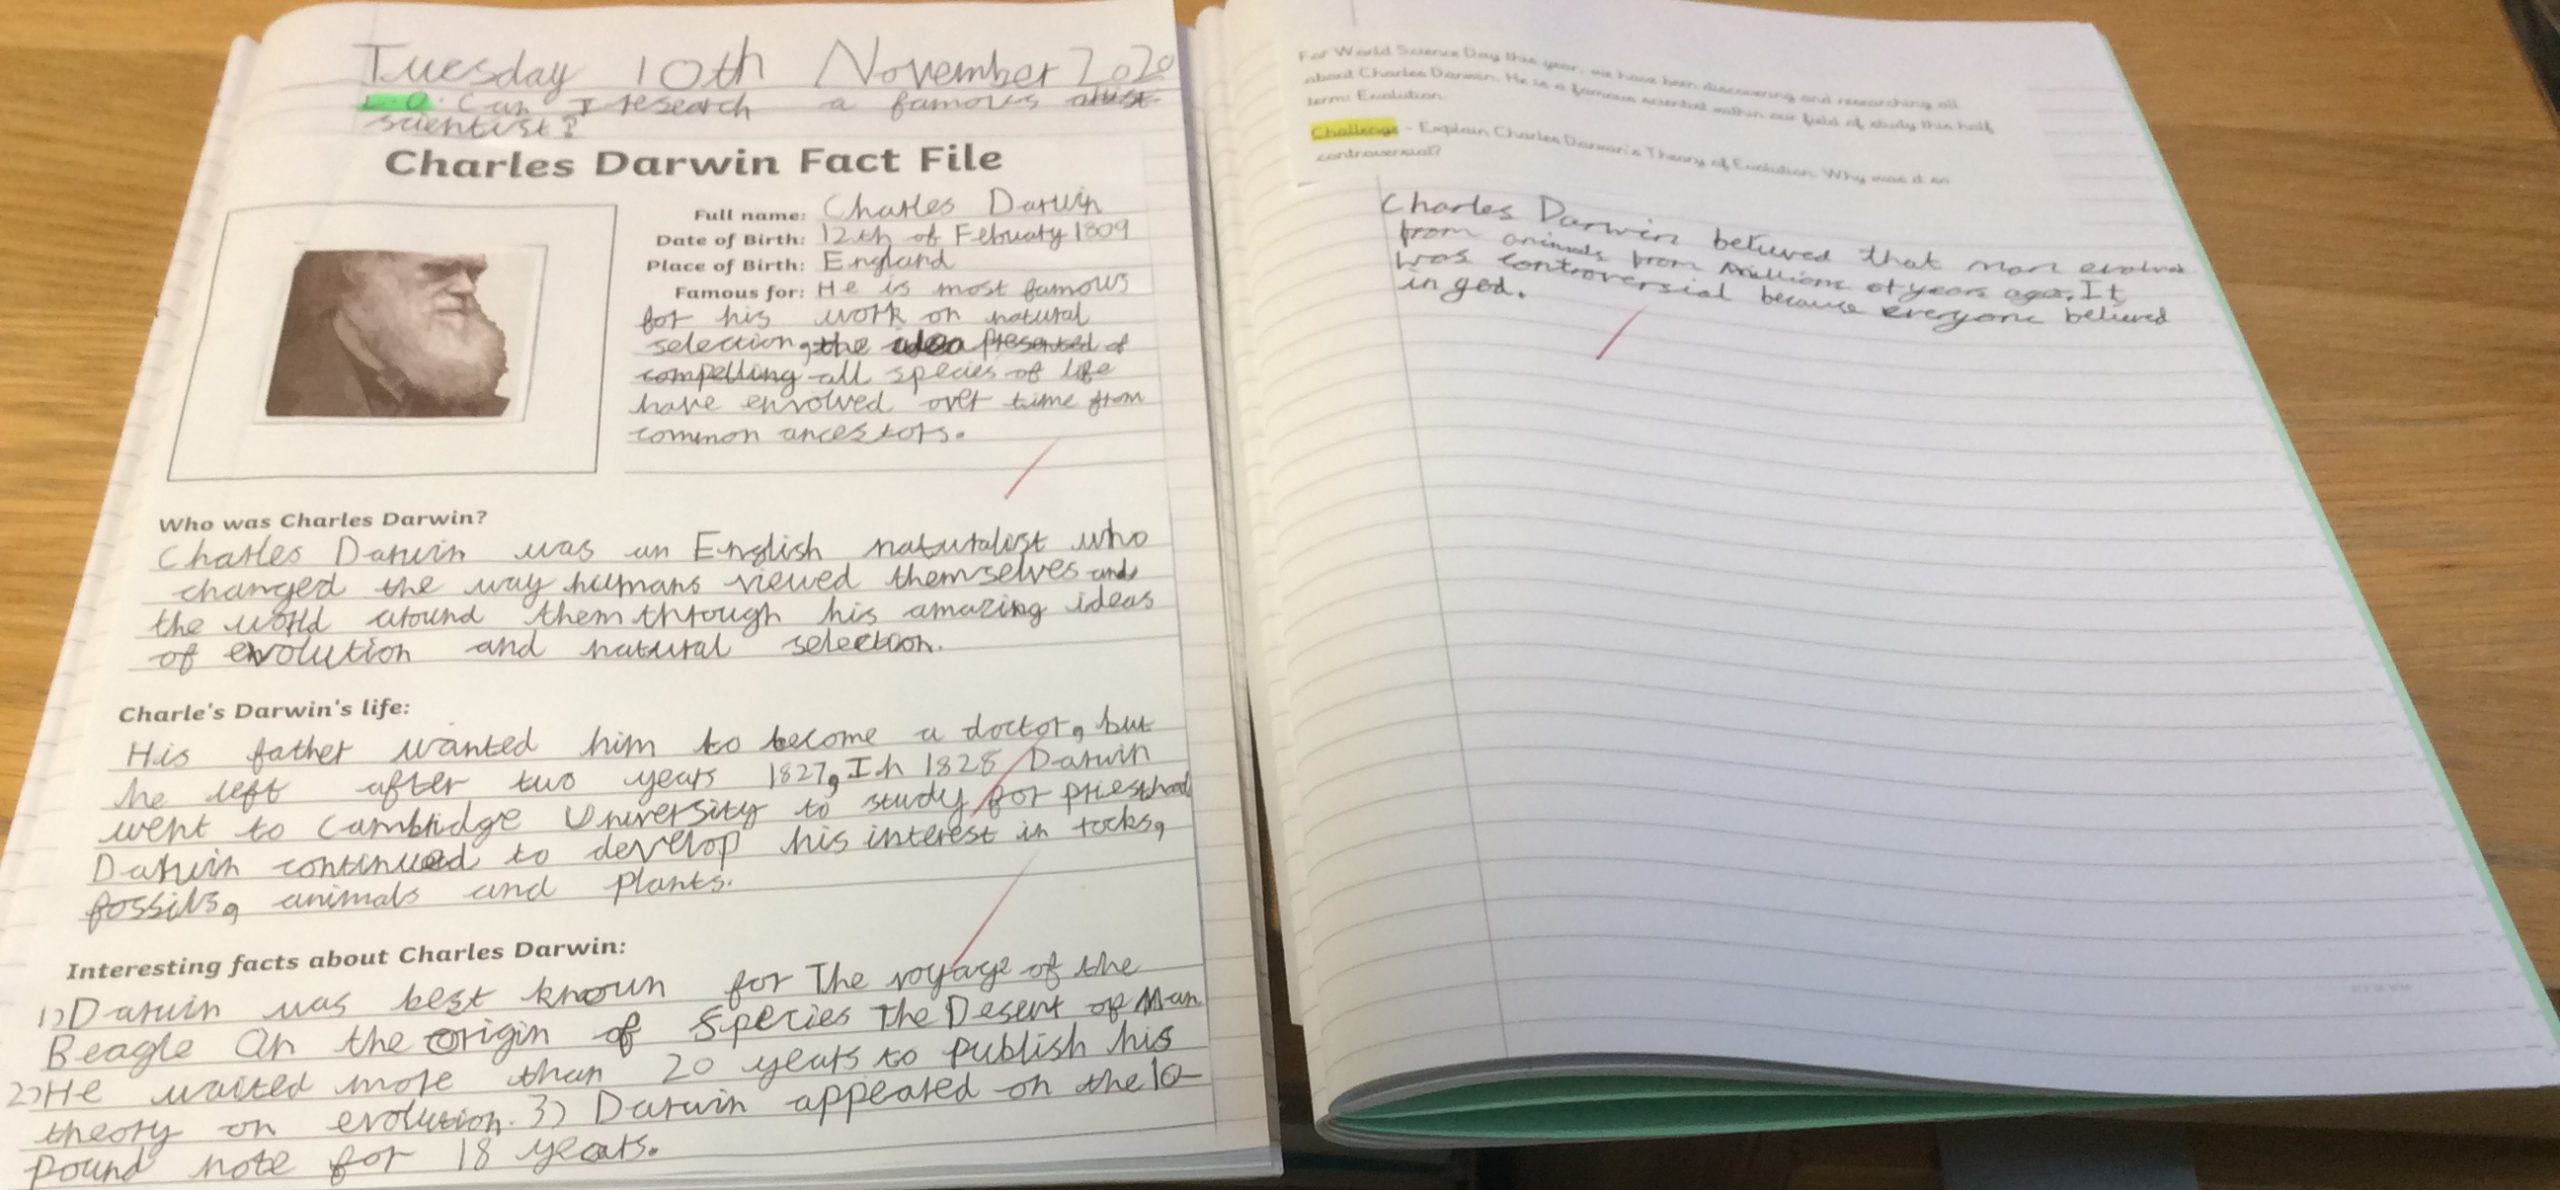 Tuesday 10th November 2020
L.O. Can I research a famous artist
scientist?
Charles Darwin Fact File
Full name: Charles Darwin
Date of Birth: 12th of February 1809
Place of Birth: England
Famous for: He is most famous
for his work on natural
selection, the idea presented of
compelling all species of life
have envolved over time from
common ancestors.
Who was Charles Darwin?
Charles Darwin was an English naturalist who
changed the way humans viewed themselves and
the world around them through his amazing ideas
of evolution and natural selection.
Charle's Darwin's life:
His father wanted him to become a doctor, but
he left after two years 1827, In 1828 Darwin
went to Cambridge University to study for priesthood
Darwin continued to develop his interest in rocks,
fossils, animals and plants.
Interesting facts about Charles Darwin:
1) Darwin was best known for The voyage of the
Beagle On the origin of Species The Desent of Man
2) He waited more than 20 years to publish his
theory on evolution. 3) Darwin appeared on the 10-
pound note for 18 years.
For World Science Day this year, we have been discovering and researching all
about Charles Darwin. He is a famous scientist within our field of study this half
term: Evolution.
Challenge - Explain Charles Darwin's Theory of Evolution. Why was it so
controversial?
Charles Darwin believed that man evolved
from animals from millions of years ago. It
was controversial because everyone believed
in god.